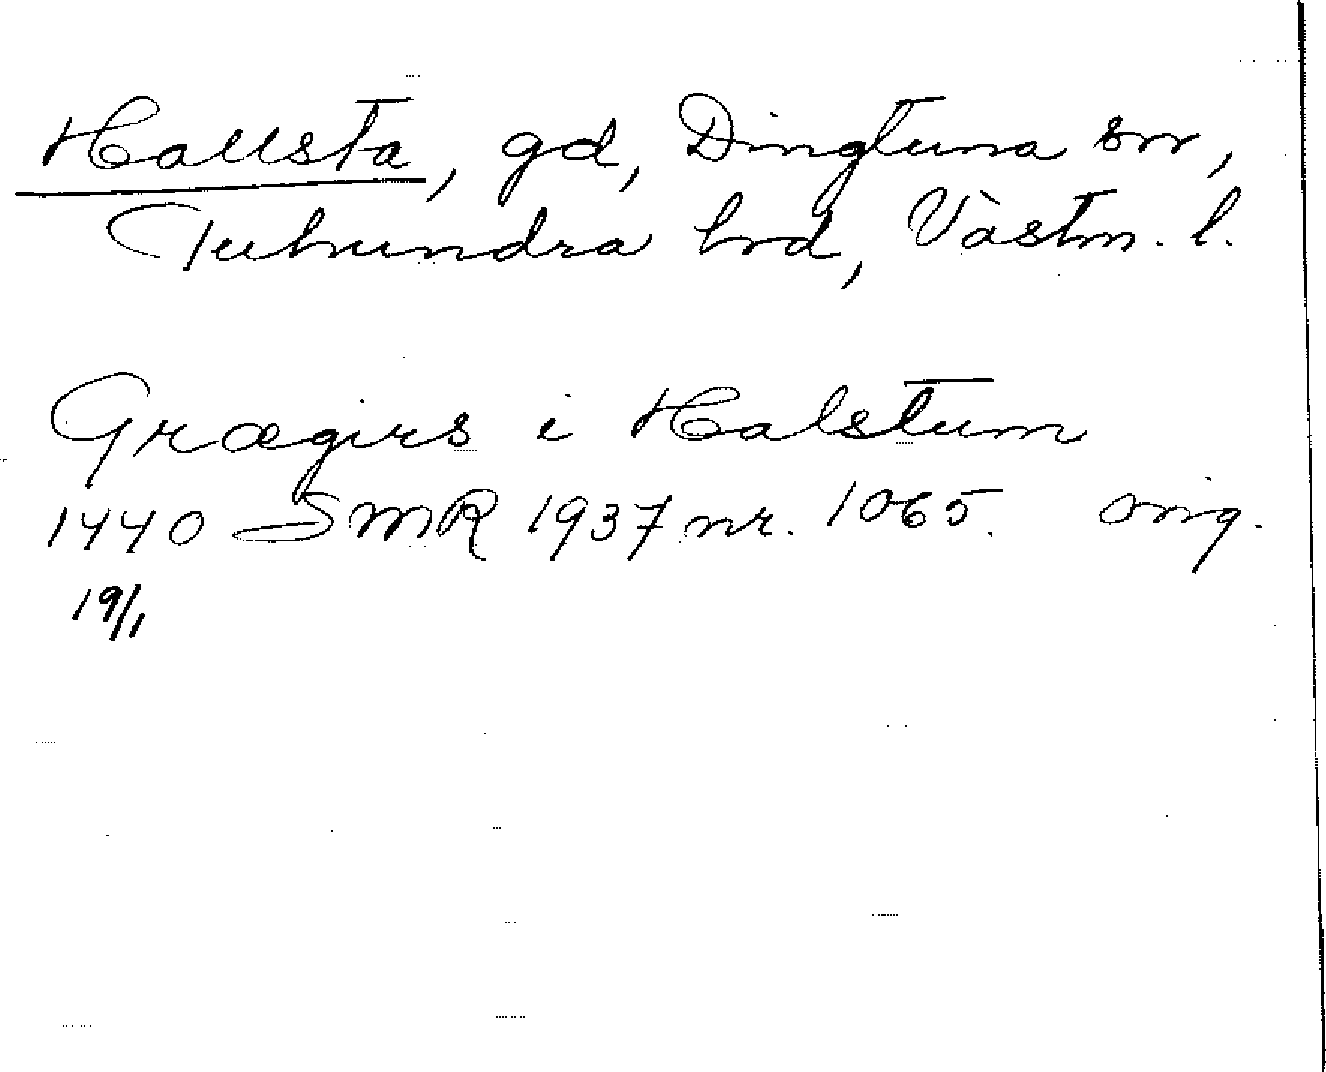 Hallsta, gd, Dingtuna sn,
Tuhundra hrd, Västm. l.
Grægirs i Halstum
1440 SMR 1937 nr. 1065. orig.
19/1